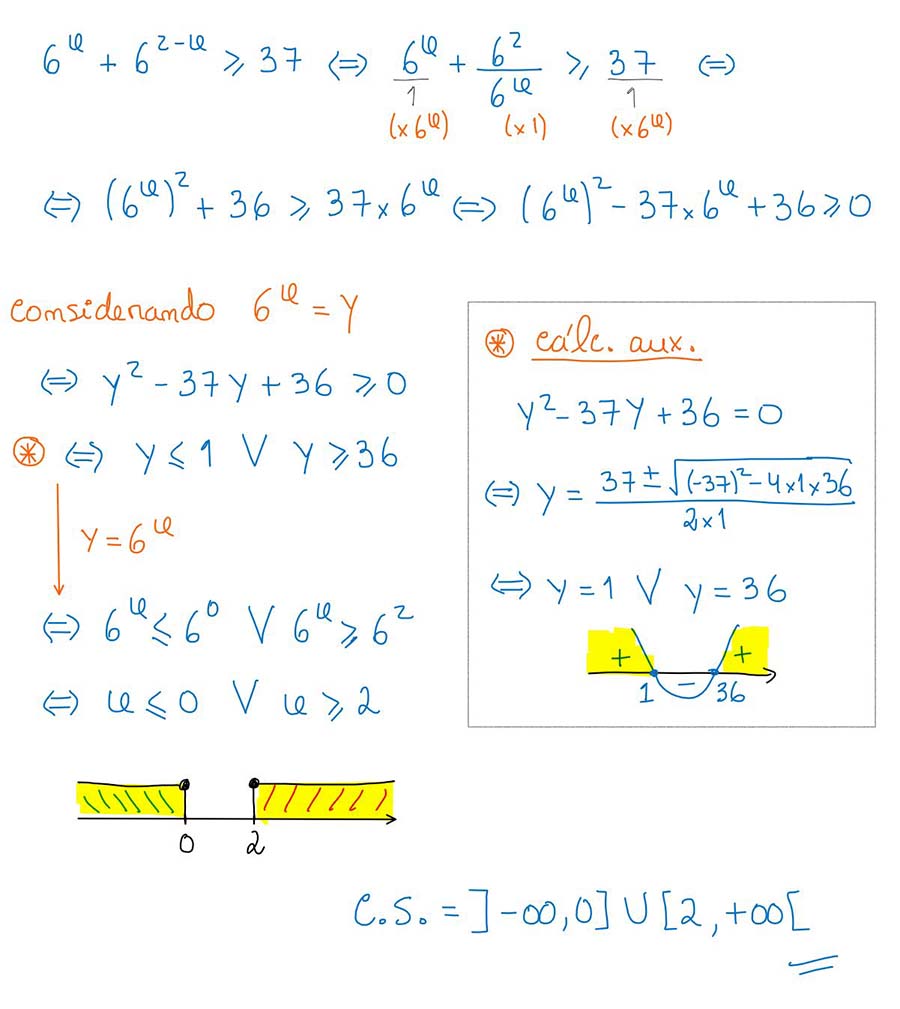 6^x + 6^(2-x) ⩾ 37 ⇔ 6^x/1 + 6²/6^x ⩾ 37/1 ⇔
(×6^x) (×1) (×6^x)
⇔ (6^x)² + 36 ⩾ 37×6^x ⇔ (6^x)² - 37×6^x + 36 ⩾ 0
Considerando 6^x = y
⇔ y² - 37y + 36 ⩾ 0
⊛ ⇔ y ⩽ 1 ∨ y ⩾ 36
y = 6^x
⇔ 6^x ⩽ 6^0 ∨ 6^x ⩾ 6²
⇔ x ⩽ 0 ∨ x ⩾ 2
⊛ cálc. aux.
y² - 37y + 36 = 0
⇔ y = (37 ± √((-37)² - 4×1×36))/(2×1)
⇔ y = 1 ∨ y = 36
+ - +
1 36
0 2
C.S. = ]-∞, 0] ∪ [2, +∞[